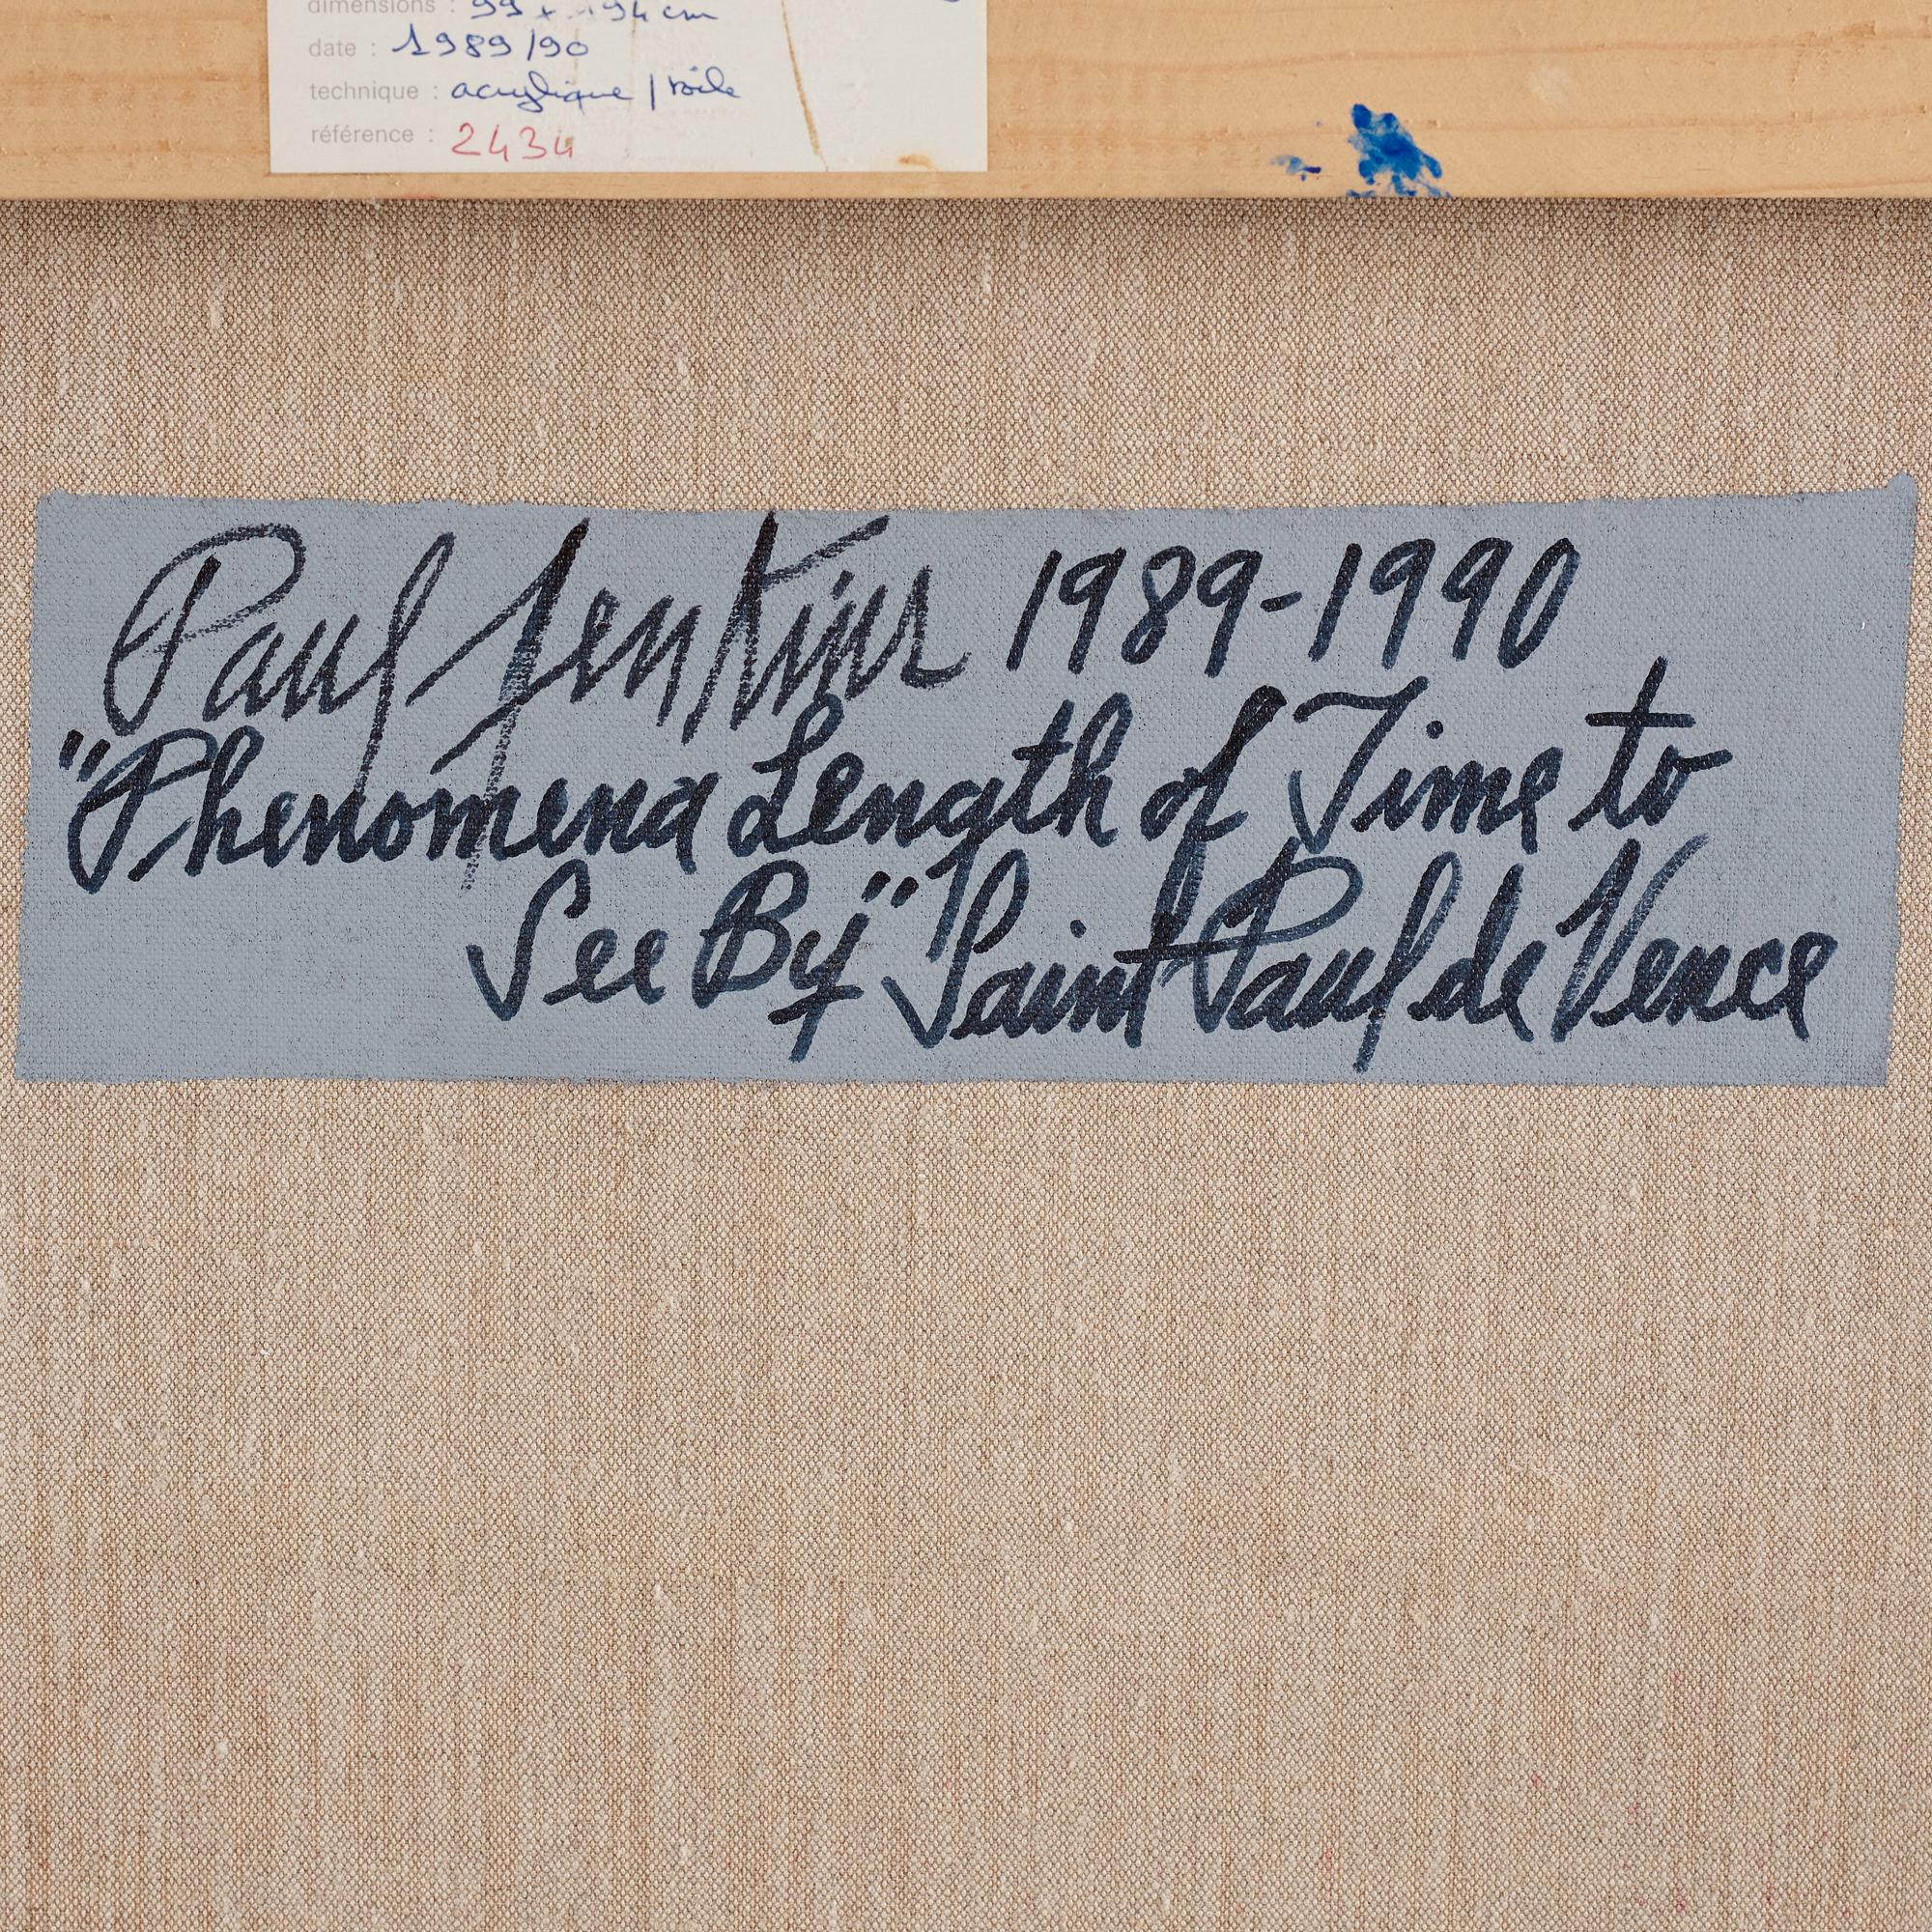 dimensions : 99 x 194 cm
date : 1989/90
technique : acrylique / toile
référence : 2434
Paul Jenkins 1989-1990
"Phenomena Length of Time to
See By" Saint Paul de Vence